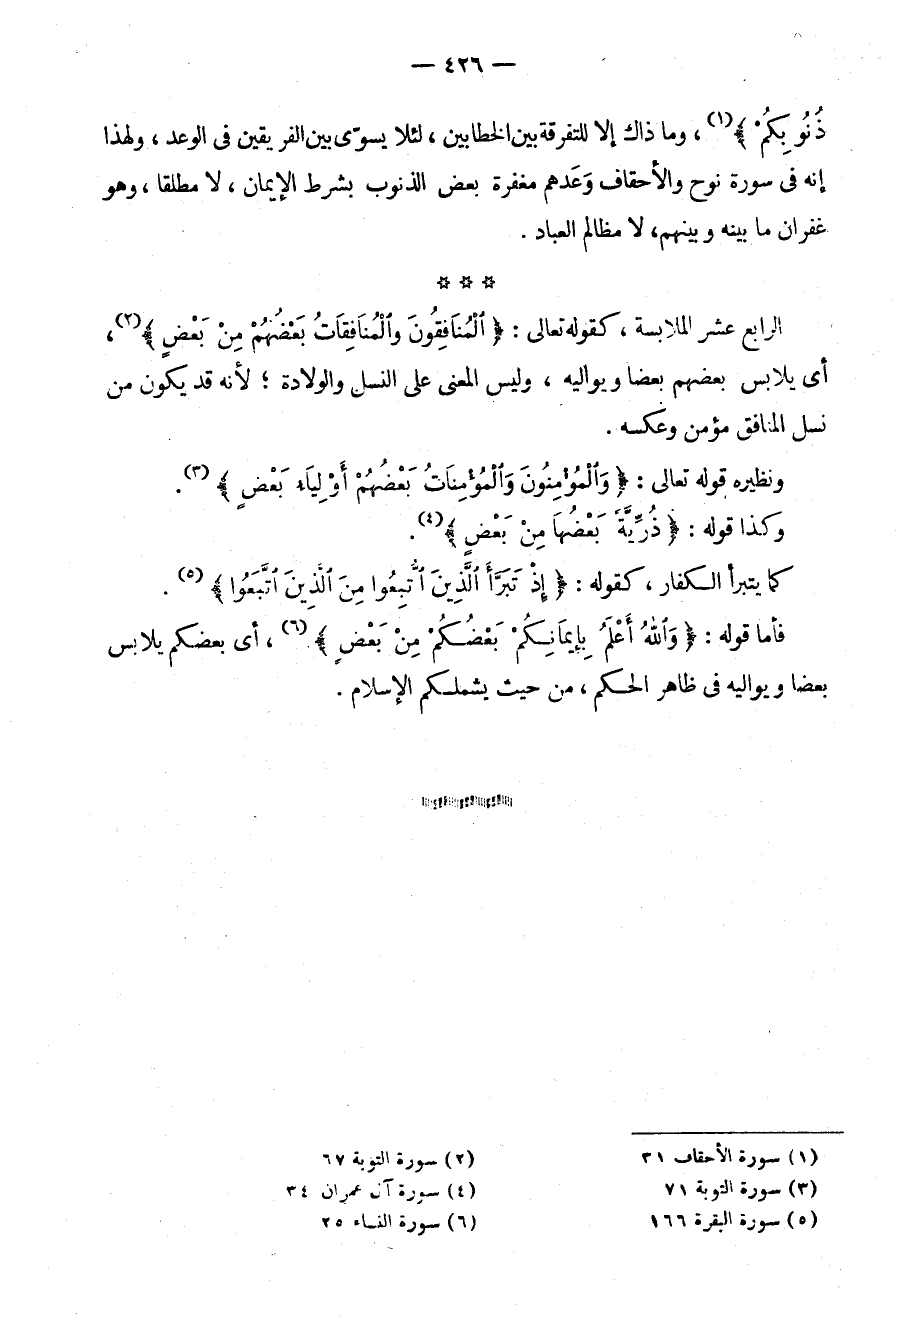 — ٤٢٦ —
ذُنُوبِكُمْ ﴾(١) ، وما ذاك إلا للتفرقة بين الخطابين ، لئلا يسوّى بين الفريقين فى الوعد ، ولهذا
إنه فى سورة نوح والأحقاف وَعَدهم مغفرة بعض الذنوب بشرط الإيمان ، لا مطلقا ، وهو
غفران ما بينه وبينهم، لا مظالم العباد .
* * *
الرابع عشر الملابسة ، كقوله تعالى : ﴿ ٱلْمُنَافِقُونَ وٱلْمُنَافِقَاتُ بَعْضُهُمْ مِنْ بَعْضٍ ﴾(٢) ،
أى يلابس بعضهم بعضا ويواليه ، وليس المعنى على النسل والولادة ؛ لأنه قد يكون من
نسل المنافق مؤمن وعكسه .
ونظيره قوله تعالى : ﴿ وَٱلْمُؤْمِنُونَ وَٱلْمُؤْمِنَاتُ بَعْضُهُمْ أَوْلِيَاء بَعْضٍ ﴾(٣) .
وكذا قوله : ﴿ ذُرِّيَّةً بَعْضُهَا مِنْ بَعْضٍ ﴾(٤) .
كما يتبرأ الكفار ، كقوله : ﴿ إِذْ تَبَرَّأَ ٱلَّذِينَ ٱتُّبِعُوا مِنَ ٱلَّذِينَ ٱتَّبَعُوا ﴾(٥) .
فأما قوله : ﴿ وَٱللهُ أَعْلَمُ بِإِيمَانِكُمْ بَعْضُكُمْ مِنْ بَعْضٍ ﴾(٦) ، أى بعضكم يلابس
بعضا ويواليه فى ظاهر الحكم ، من حيث يشملكم الإسلام .
(١) سورة الأحقاف ٣١ (٢) سورة التوبة ٦٧
(٣) سورة التوبة ٧١ (٤) سورة آل عمران ٣٤
(٥) سورة البقرة ١٦٦ (٦) سورة النساء ٢٥